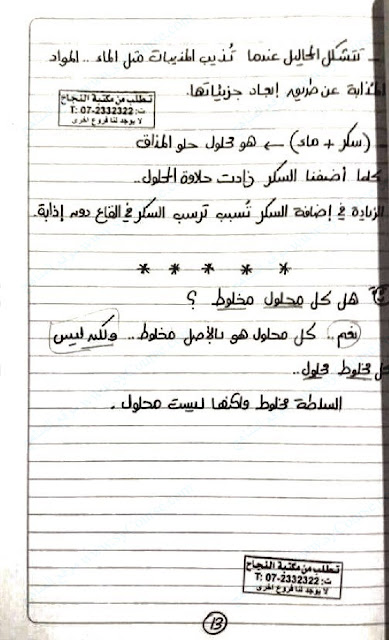 ـ تتشكل المحاليل عندما تُذيب المذيبات مثل الماء .. المواد
المُذابة عن طريق إبعاد جزيئاتها.
تطلب من مكتبة النجاح
ت: 07-2332322 :T
لا يوجد لنا فروع اخرى
ـ (سكر + ماء) ← هو محلول حلو المذاق
كلما أضفنا السكر زادت حلاوة المحلول..
الزيادة في إضافة السكر تُسبب ترسب السكر في القاع دون إذابة.
* * * * *
هل كل محلول مخلوط ؟
نعم .. كل محلول هو بالأصل مخلوط .. ولكن ليس
كل مخلوط محلول..
السلطة مخلوط ولكنها ليست محلول .
تطلب من مكتبة النجاح
ت: 07-2332322 :T
لا يوجد لنا فروع اخرى
13